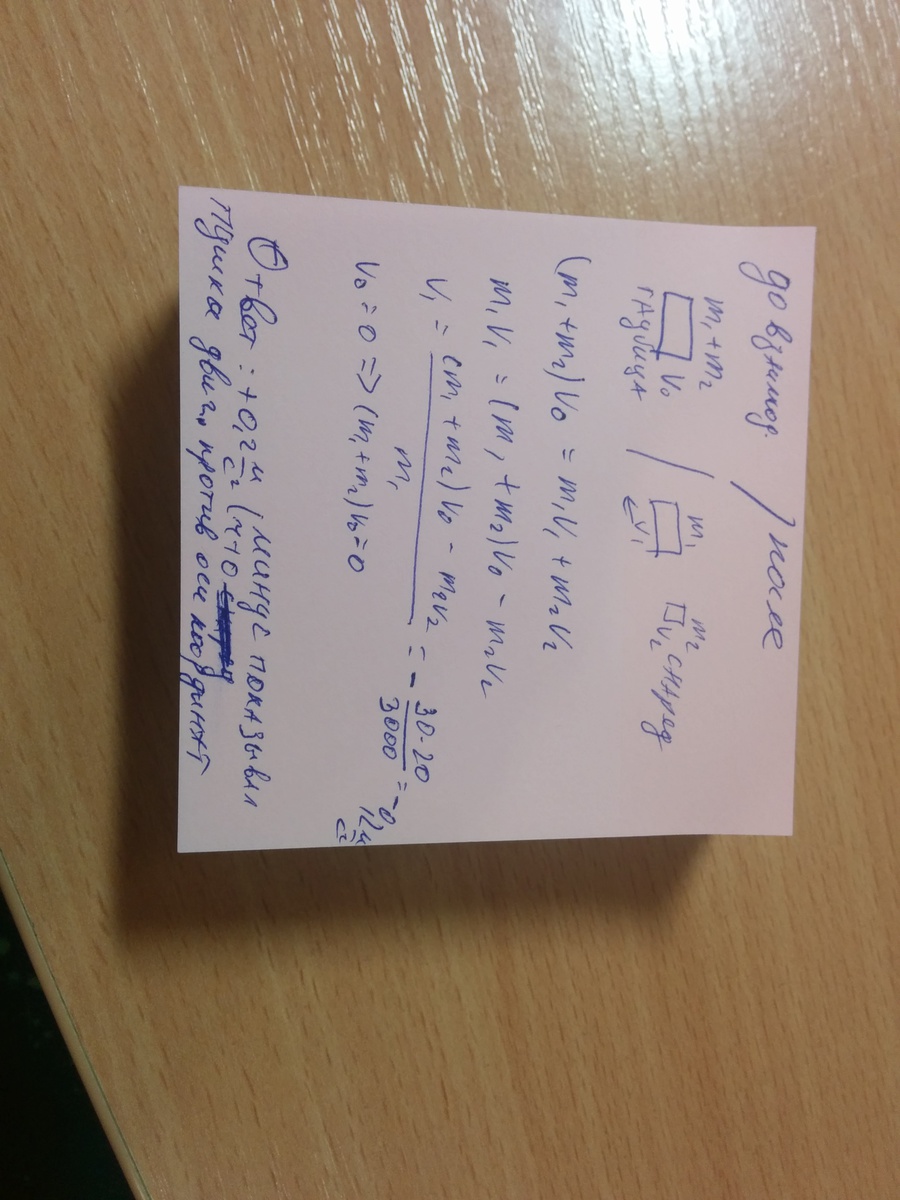 до взаимод. / после
m₁ + m₂ / m₁ m₂
V₀ V₁ V₂ снаряд
гаубица
(m₁ + m₂)V₀ = m₁V₁ + m₂V₂
m₁V₁ = (m₁ + m₂)V₀ - m₂V₂
V₁ = ((m₁ + m₂)V₀ - m₂V₂) / m₁ = - 30·20 / 3000 = -0,2 м/с
V₀ = 0 => (m₁ + m₂)V₀ = 0
Ответ: +0,2 м/с (минус показывал
что
Пушка двиг. против оси координат